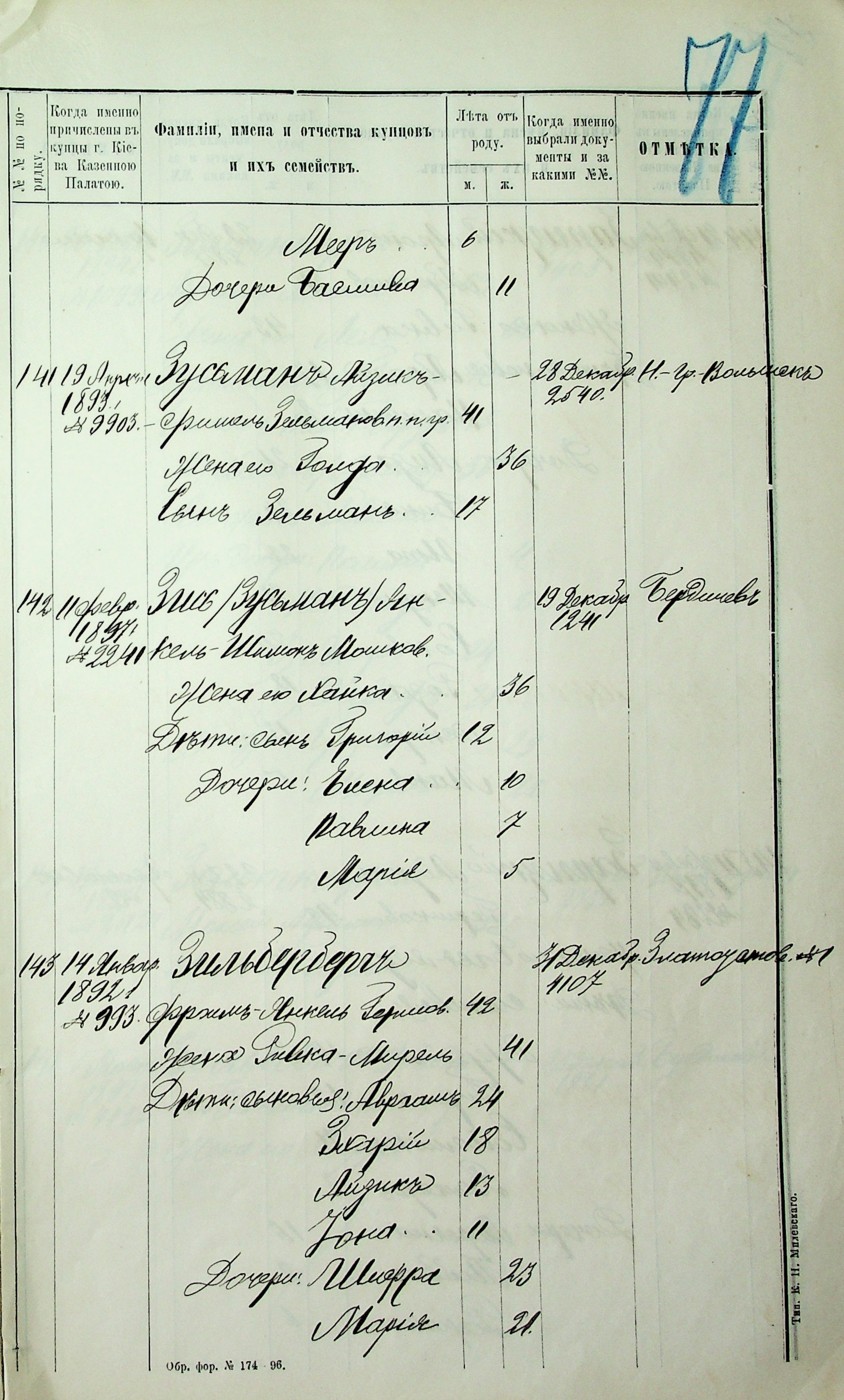 77
№№ по по-
рядку.
Когда именно
причислены въ
купцы г. Кіе-
ва Казенною
Палатою.
Фамиліи, имена и отчества купцовъ
и ихъ семействъ.
Лѣта отъ
роду.
м. ж.
Когда именно
выбрали доку-
менты и за
какими №№.
ОТМѢТКА.
Мееръ . . 6
Дочери 11
141 19 Апрѣля Зусьманъ Айзикъ- - 28 Декабр. Н.-гр.-Волынскъ
1893, 2540.
№ 9903.- Фишель Зельмановъ п. п. гр. 41
Жена его Голда . . 36
Сынъ Зельманъ. . 17
142 11 февр. Зись /Зусьманъ/ Ян- 19 Декабр Бердичевъ
1897, 1241
№ 2241 кель-Шимонъ Мошков.
Жена его Хайка . . 36
Дѣти: сынъ Григорій 12
Дочери: Елена . . 10
Павлина 7
Марія 5
143 14 Январ. Зильбербергъ 31 Декабр. Златоустов. №1
1892, 4107
№ 993. Фроимъ-Янкель Гершов. 42
Жена Ривка-Мирель 41
Дѣти: сыновья: Авраамъ 24
18
Айзикъ 13
Іона. . . 11
Дочери: Шифра 23
Марія 21.
Обр. фор. № 174 - 96.
Тип. К. Н. Милевскаго.